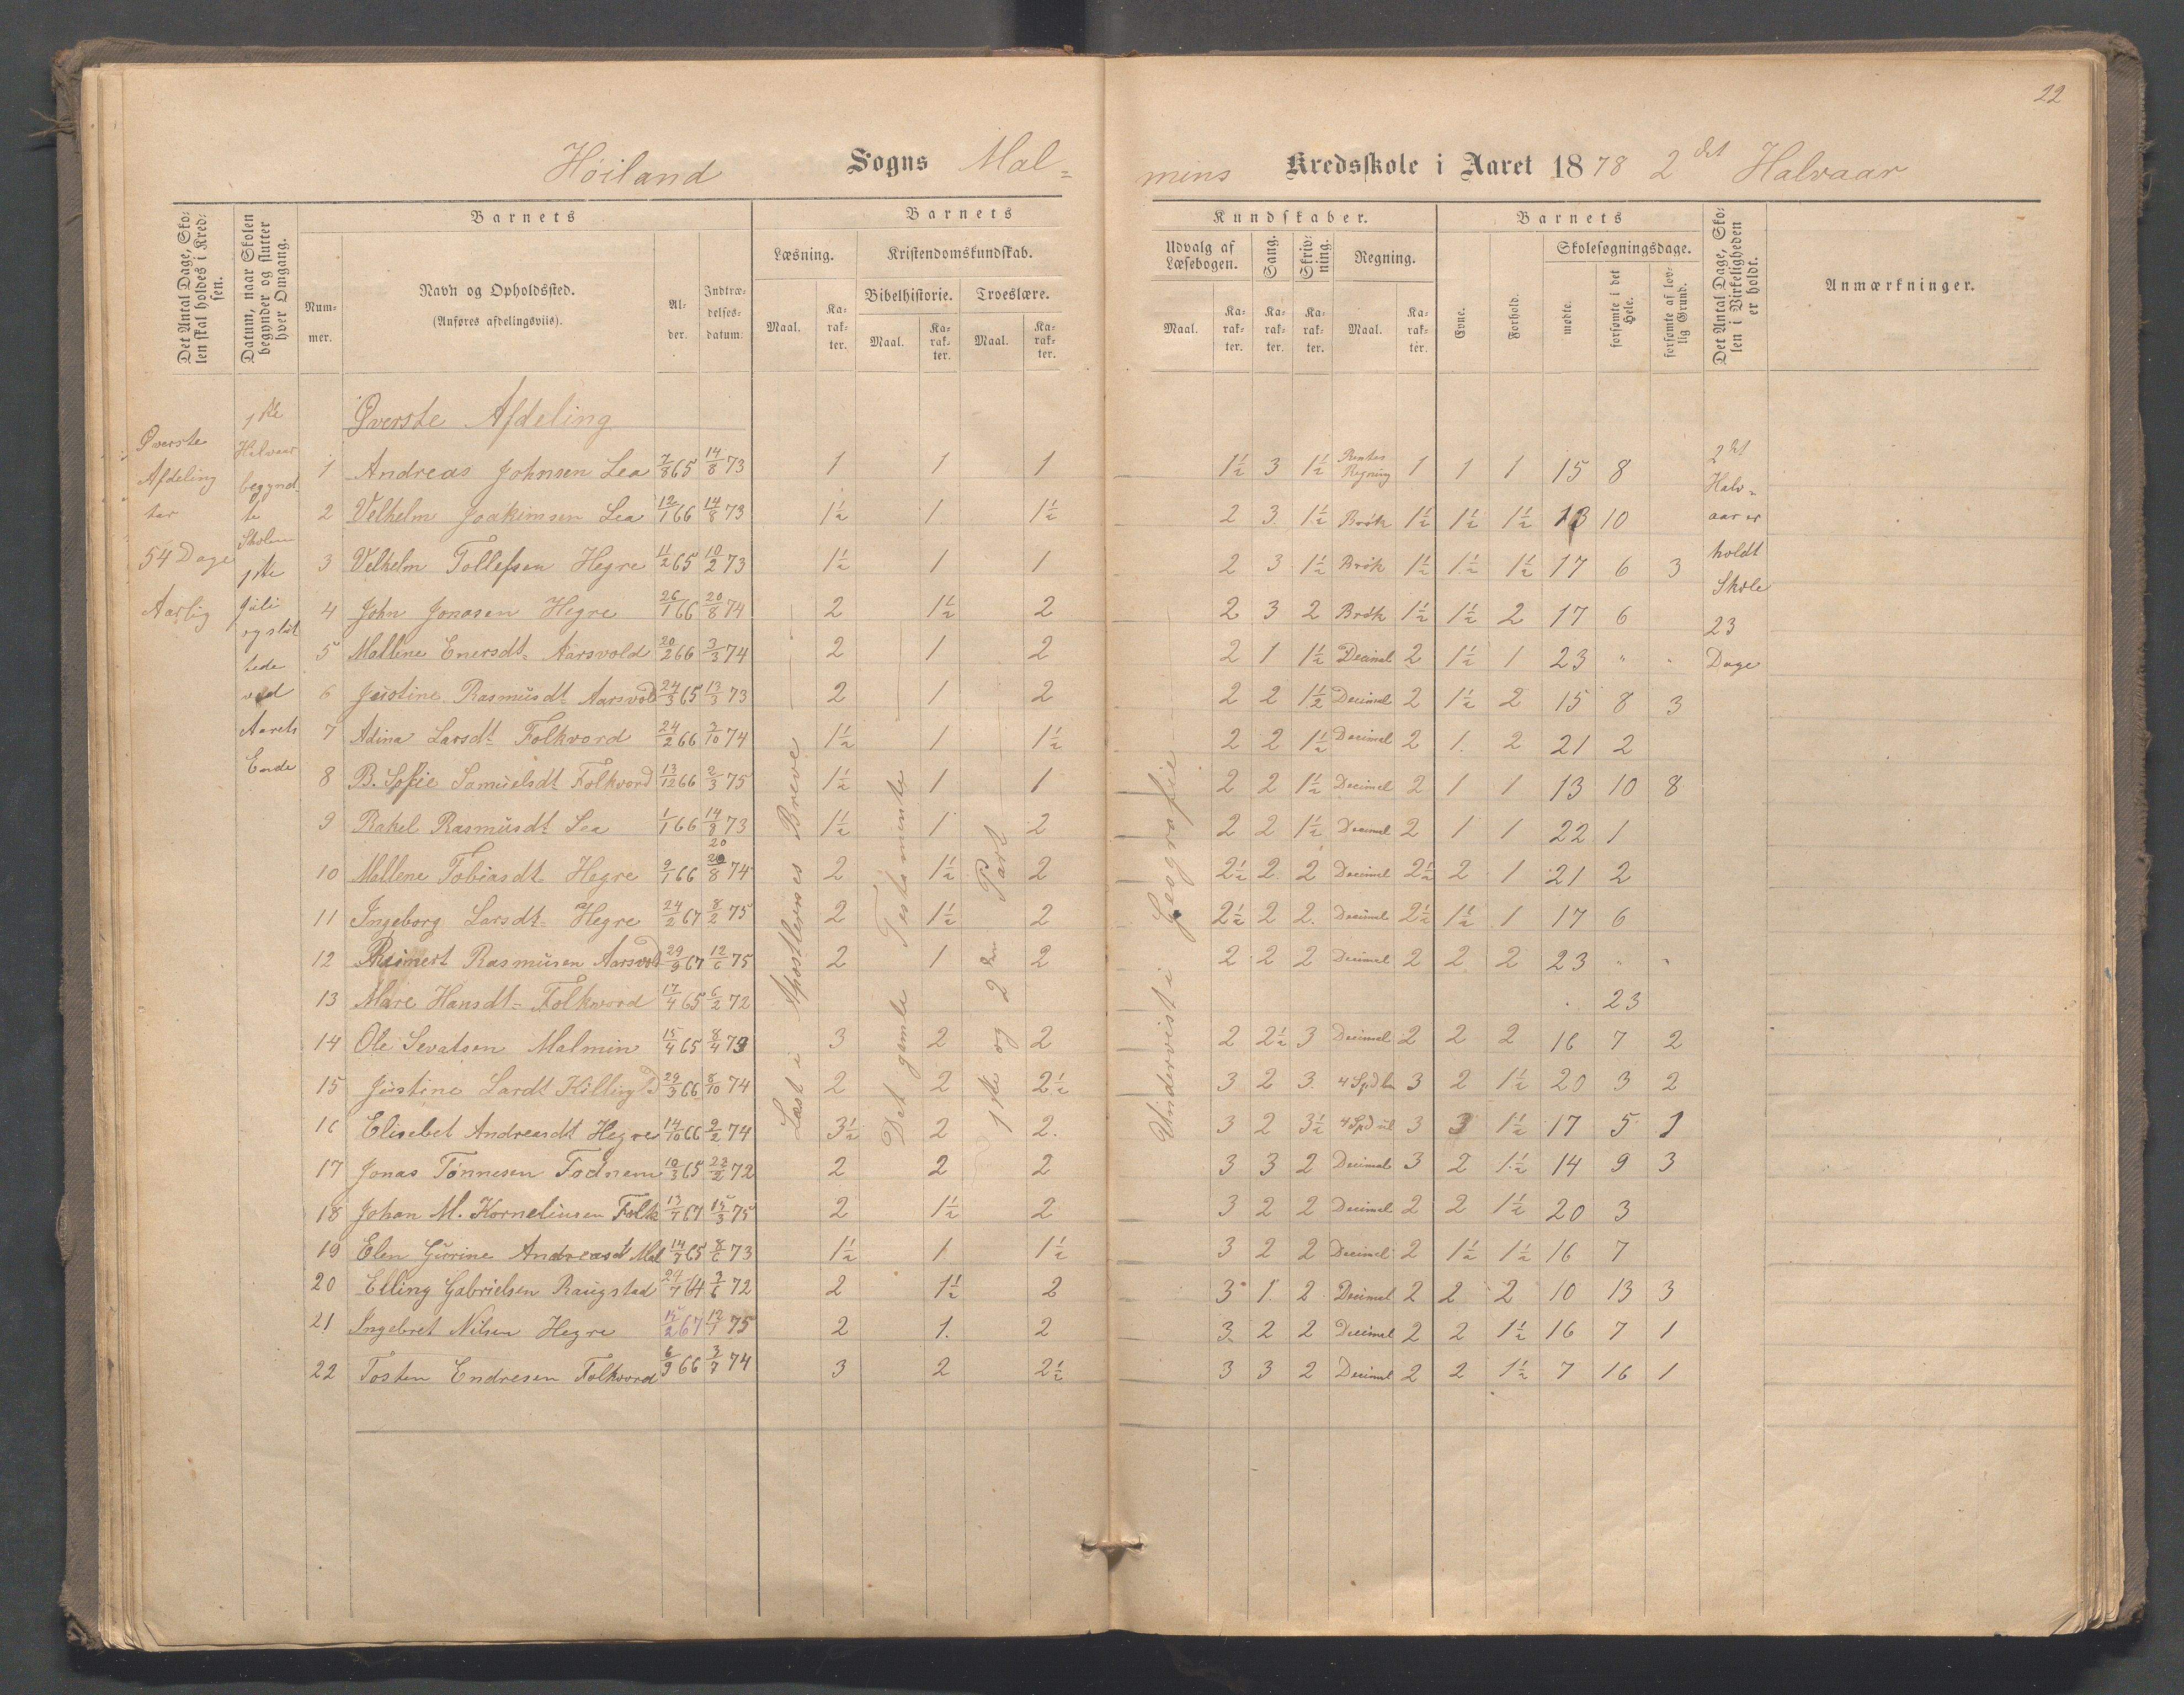 22
Høiland Sogns Mal=
mins Kredsskole i Aaret 1878 2det Halvaar
Det Antal Dage, Skolen skal holdes i Kredsen.
Datum, naar Skolen begynder og slutter hver Omgang.
Barnets
Nummer.
Navn og Opholdssted.
(Anføres afdelingsviis).
Alder.
Indtrædelsesdatum.
Barnets
Læsning.
Maal.
Karakter.
Kristendomskundskab.
Bibelhistorie.
Maal.
Karakter.
Troeslære.
Maal.
Karakter.
Kundskaber.
Udvalg af Læsebogen.
Maal.
Karakter.
Sang.
Karakter.
Skrivning.
Karakter.
Regning.
Maal.
Karakter.
Barnets
Evne.
Forhold.
Skolesøgningsdage.
mødte.
forsømte i det Hele.
forsømte af lovlig Grund.
Det Antal Dage, Skolen i Virkeligheden er holdt.
Anmærkninger.
Øverste
Afdeling
har
54 Dage
Aarlig
1ste
Halvaar
begynd-
te
Skolen
1ste
Juli
og slut
tede
ved
Aarets
Ende
Øverste Afdeling
Læst i Apostlernes Breve
Det gamle Testamente
1ste og 2den Part
Undervist i Geografie
2det
Halv-
aar er
holdt
Skole
23
Dage
1 Andreas Johnsen Lea 7/8 65 14/8 73 1 1 1 1½ 3 1½ Rentes Regning 1 1 1 15 8
2 Velhelm Joakimsen Lea 12/1 66 14/8 73 1½ 1 1½ 2 3 1½ Brøk 1½ 1½ 1½ 13 10
3 Velhelm Tollefsen Hegre 11/2 65 10/2 73 1½ 1 1 2 3 1½ Brøk 1½ 1½ 1½ 17 6 3
4 John Jonasen Hegre 26/1 66 20/8 74 2 1½ 2 2 3 2 Brøk 1½ 1½ 2 17 6
5 Malline Enersdt. Aarsvold 20/2 66 3/3 74 2 1 2 2 1 1½ Decimal 2 1½ 1 23 " "
6 Justine Rasmusdt Aarsvold 24/3 65 13/3 73 2 1 2 2 2 1½ Decimal 2 1½ 2 15 8 3
7 Adina Larsdt Folkvord 24/2 66 3/10 74 1½ 1 1½ 2 2 1½ Decimal 2 1 2 21 2
8 B. Sofie Samuelsdt Folkvord 13/12 66 2/3 75 1½ 1 1 2 2 1½ Decimal 2 1 1 13 10 8
9 Rakel Rasmusdt Lea 1/1 66 14/8 73 1½ 1 2 2 2 1½ Decimal 2 1 1 22 1
10 Mallene Tobiasdt Hegre 9/1 66 20/8 74 2 1½ 2 2½ 2 2 Decimal 2½ 2 1 21 2
11 Ingeborg Larsdt Hegre 24/2 67 8/2 75 2 1½ 2 2½ 2 2 Decimal 2½ 1½ 1 17 6
12 Reinert Rasmusen Aarsvold 29/9 67 12/6 75 2 1 2 2 2 2 Decimal 2 2 2 23 " "
13 Mare Hansdt Folkvord 17/4 65 6/2 72 23
14 Ole Sevatsen Malmin 15/4 65 8/4 73 3 2 2 2 2½ 3 Decimal 2 2 2 16 7 2
15 Justine Lardt 29/3 66 8/10 74 2 2 2½ 3 2 3 4 Spd 3 2 1½ 20 3 2
16 Elisebet Andreasdt Hegre 14/10 66 9/2 74 3½ 2 2 3 2 3½ 4 Spd 3 3 1½ 17 5 1
17 Jonas Tønnesen Fodnem 10/3 65 23/2 72 2 2 2 3 3 2 Decimal 3 2 1½ 14 9 3
18 Johan M. Korneliusen Folk 13/7 67 15/3 75 2 1½ 2 3 2 2 Decimal 2 2 1½ 20 3
19 Elen Gurine Andreasdt Mal 14/7 65 8/6 73 1½ 1 1½ 3 2 2 Decimal 2 1½ 1½ 16 7
20 Elling Gabrielsen Raugstad 29/7 64 3/6 72 2 1½ 2 3 1 2 Decimal 2 2 2 10 13 3
21 Ingebret Nilsen Hegre 15/2 67 12/7 75 2 1 2 3 2 2 Decimal 2 2 1½ 16 7 1
22 Tosten Endresen Folkvord 6/9 66 3/7 74 3 2 2½ 3 3 2 Decimal 2 2 1½ 7 16 1